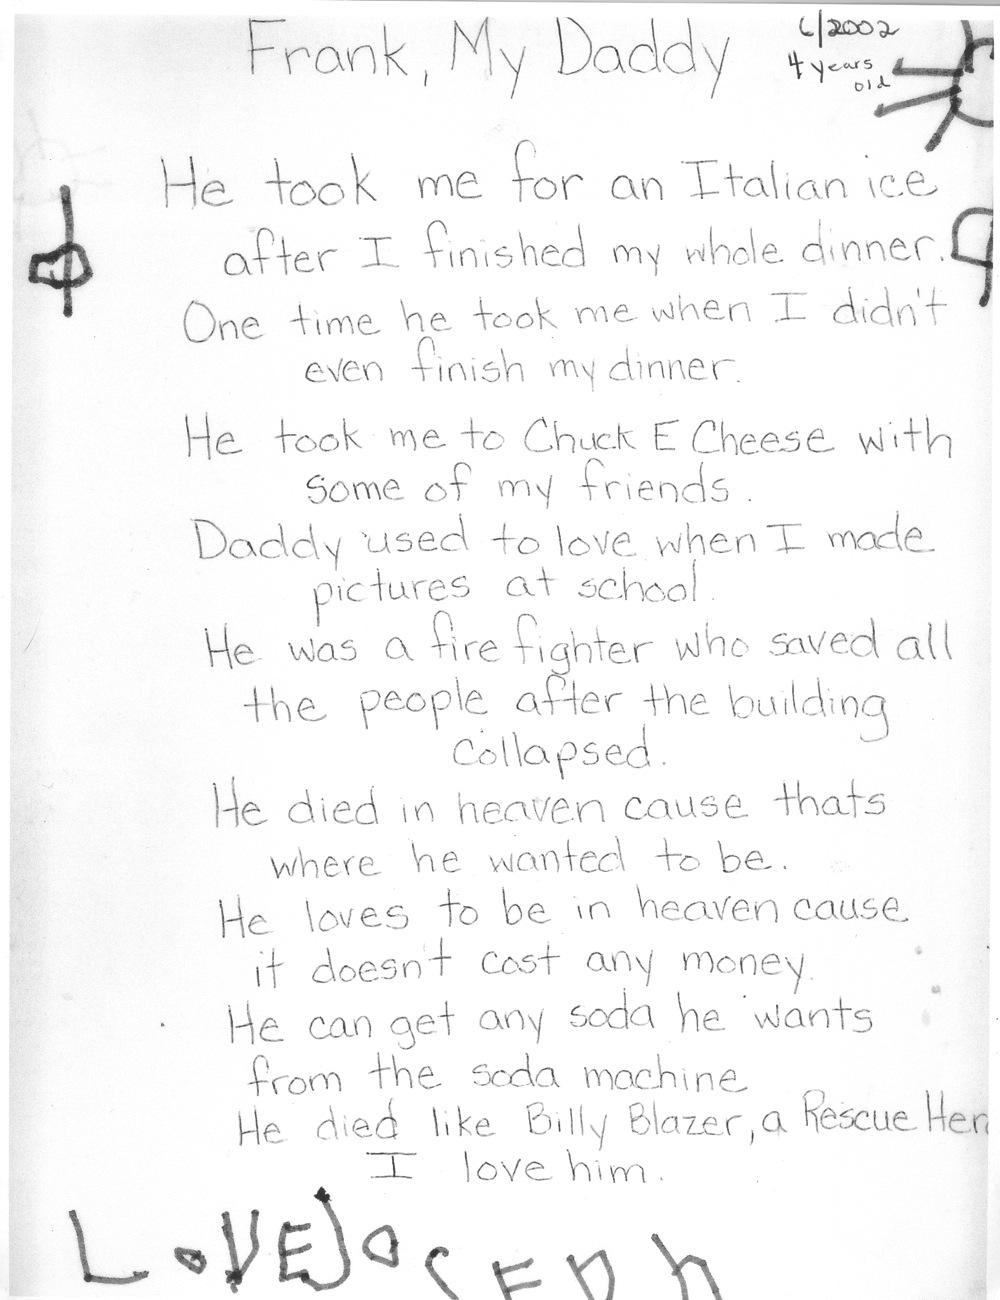 Frank, My Daddy
6/2002
4 years
old
He took me for an Italian ice
after I finished my whole dinner.
One time he took me when I didn't
even finish my dinner.
He took me to Chuck E Cheese with
some of my friends.
Daddy used to love when I made
pictures at school.
He was a fire fighter who saved all
the people after the building
collapsed.
He died in heaven cause thats
where he wanted to be.
He loves to be in heaven cause
it doesn't cost any money.
He can get any soda he wants
from the soda machine
He died like Billy Blazer, a Rescue Her
I love him.
LOVE JOSEPh